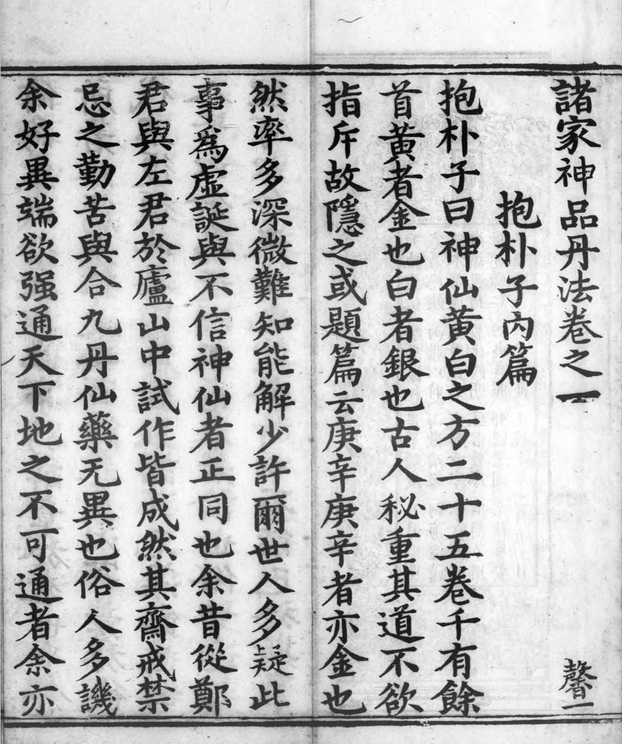 諸家神品丹法卷之一
馨一
抱朴子內篇
抱朴子曰神仙黃白之方二十五卷千有餘
首黃者金也白者銀也古人秘重其道不欲
指斥故隱之或題篇云庚辛庚辛者亦金也
然率多深微難知能解少許爾世人多疑此
事爲虛誕與不信神仙者正同也余昔從鄭
君與左君於廬山中試作皆成然其齋戒禁
忌之勤苦與合九丹仙藥无異也俗人多譏
余好異端欲强通天下地之不可通者余亦